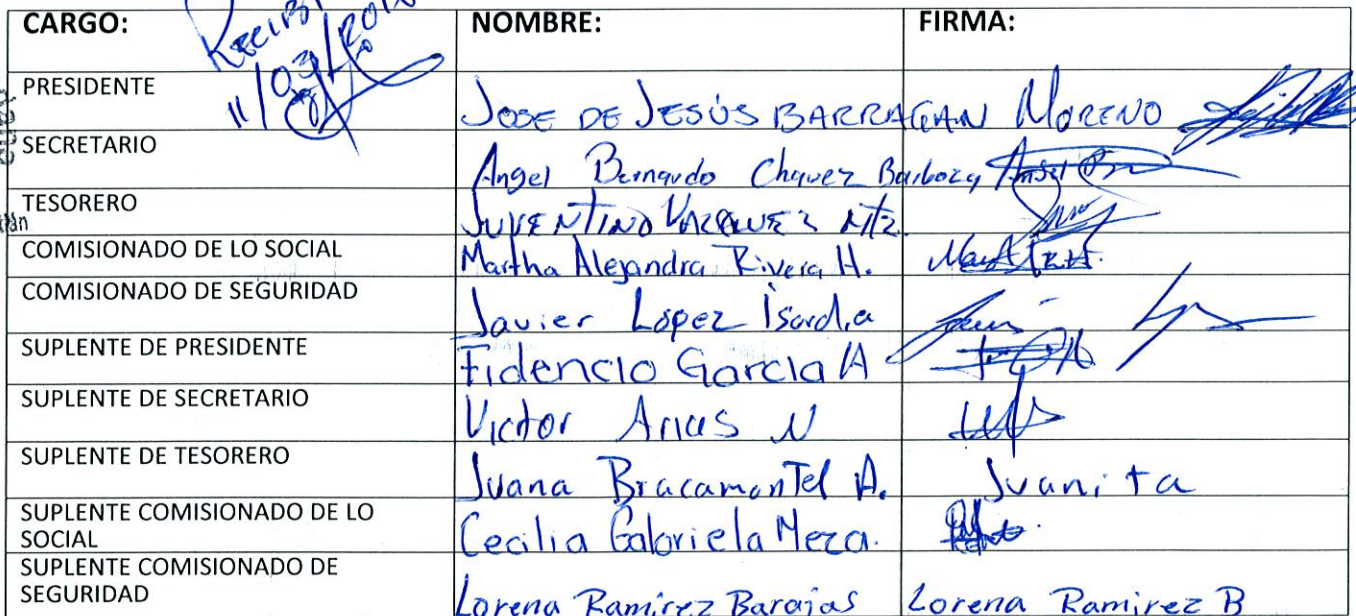 CARGO: NOMBRE: FIRMA:
RECIBI
11/03/2010
PRESIDENTE JOSE DE JESÚS BARRAGAN MORENO
SECRETARIO Angel Bernardo Chavez Barboza Angel
TESORERO JUVENTINO VAZQUEZ MTZ.
COMISIONADO DE LO SOCIAL Martha Alejandra Rivera H.
COMISIONADO DE SEGURIDAD Javier López Isordia
SUPLENTE DE PRESIDENTE Fidencio Garcia A
SUPLENTE DE SECRETARIO Victor Arias N
SUPLENTE DE TESORERO Juana Bracamontel A. Juanita
SUPLENTE COMISIONADO DE LO
SOCIAL Cecilia Gabriela Meza.
SUPLENTE COMISIONADO DE
SEGURIDAD Lorena Ramírez Barajas Lorena Ramirez B